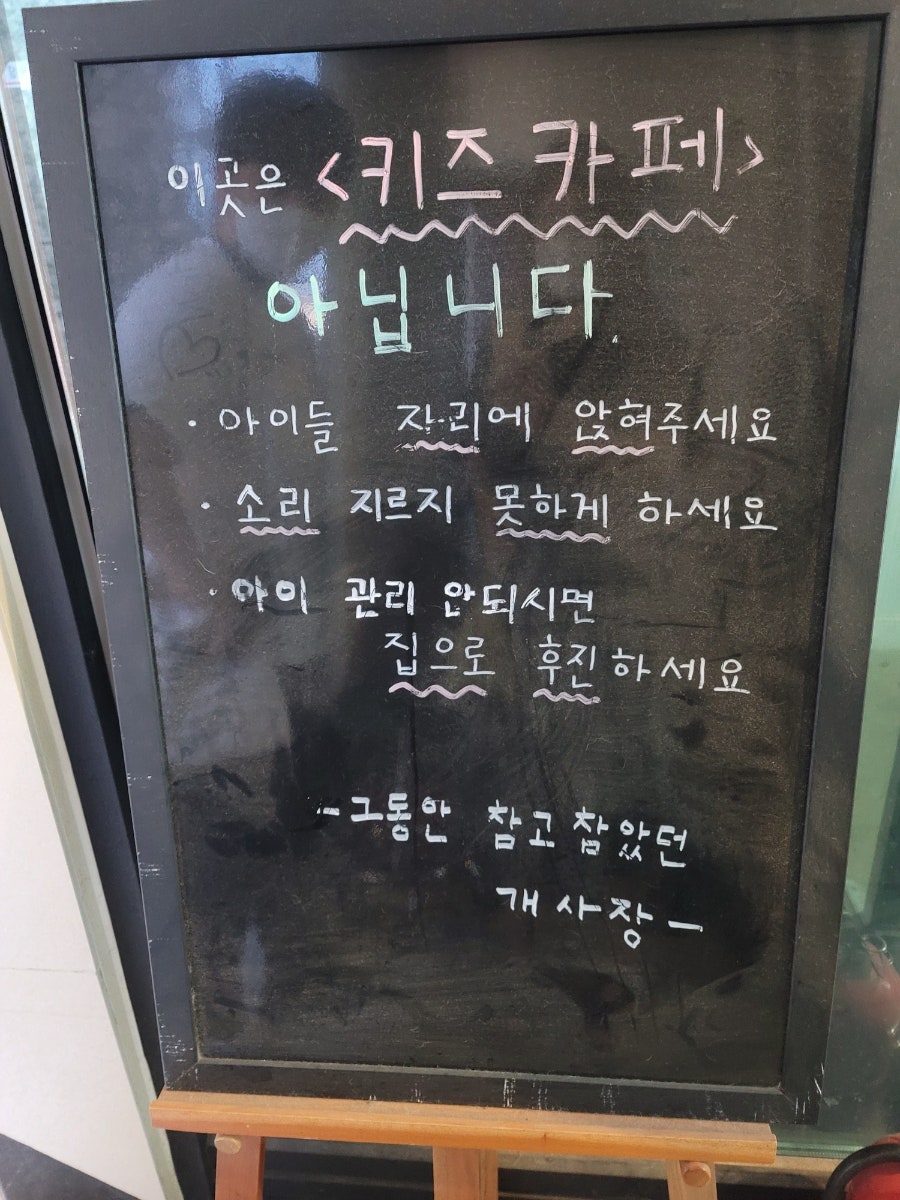 이곳은 <키즈 카페>
아닙니다.
· 아이들 자리에 앉혀주세요
· 소리 지르지 못하게 하세요
· 아이 관리 안되시면
집으로 후진하세요
- 그동안 참고 참았던
개 사장 -